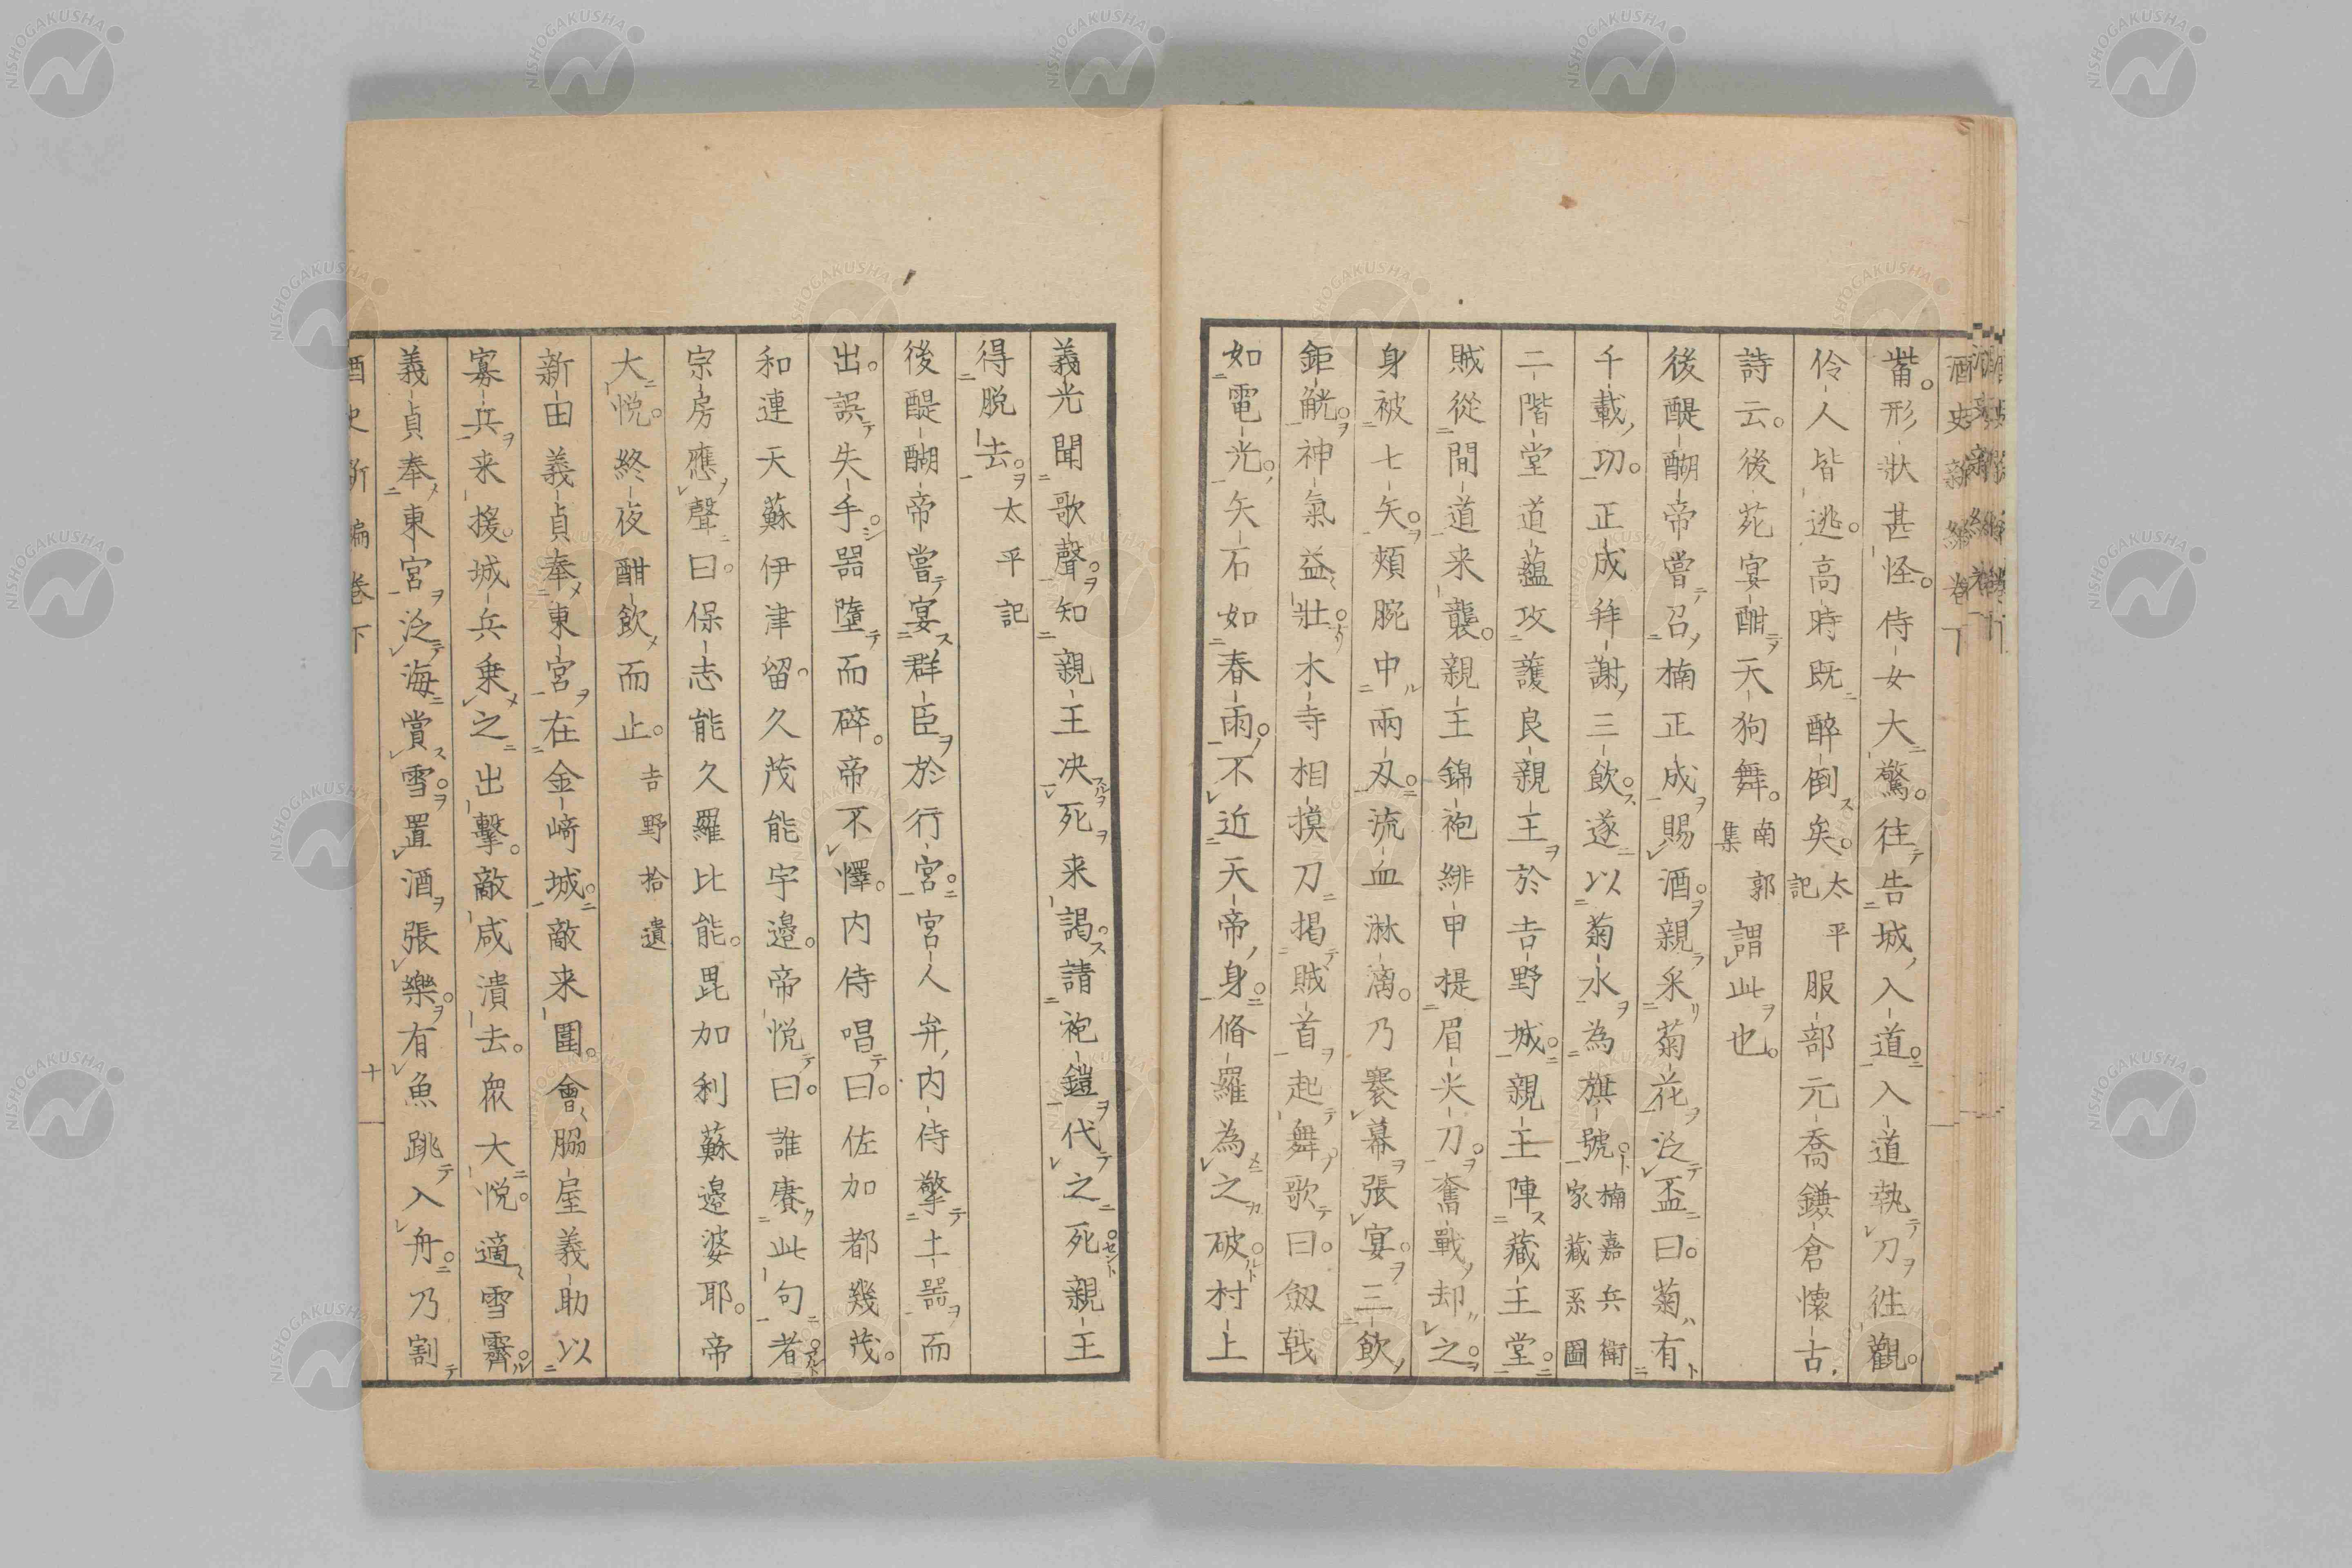 酒史新編卷下
觜。形狀甚怪。侍女大驚。往告城入道。入道執刀往觀。
伶人皆逃。高時既醉倒矣。太平記服部元喬鎌倉懷古
詩云。後苑宴酣天狗舞。南郭集謂此也。
後醍醐帝嘗召楠正成賜酒。親采菊花泛盃曰。菊有
千載功。正成拜謝三飲。遂以菊水為旗號。楠嘉兵衛家藏系圖
二階堂道蘊攻護良親王於吉野城。親王陣藏王堂。
賊從間道来襲。親王錦袍緋甲提眉尖刀。奮戰却之。
身被七矢。頰腕中兩刃。流血淋漓。乃褰幕張宴。三飲
鉅觥。神氣益壯。木寺相摸刀揭賊首起舞歌曰。劔戟
如電光。矢石如春雨。不近天帝身。脩羅為之破。村上
義光聞歌聲。知親王决死来謁。請袍鎧代之死。親王
得脱去。太平記
後醍醐帝嘗宴群臣於行宮。宮人弁内侍擎土器而
出。誤失手。器墮而碎。帝不懌。内侍唱曰。佐加都幾茂。
和連天蘇伊津留。久茂能宇邉。帝悦曰。誰賡此句者
宗房應聲曰。保志能久羅比能。毘加利蘇邉婆耶。帝
大悦。終夜酣飲而止。吉野拾遺
新田義貞奉東宮在金﨑城。敵来圍。會脇屋義助以
寡兵来援。城兵乗之出擊。敵咸潰去。衆大悦。適雪霽。
義貞奉東宮泛海賞雪。置酒張樂。有魚跳入舟。乃割
酒史新編卷下
十
NISHOGAKUSHA